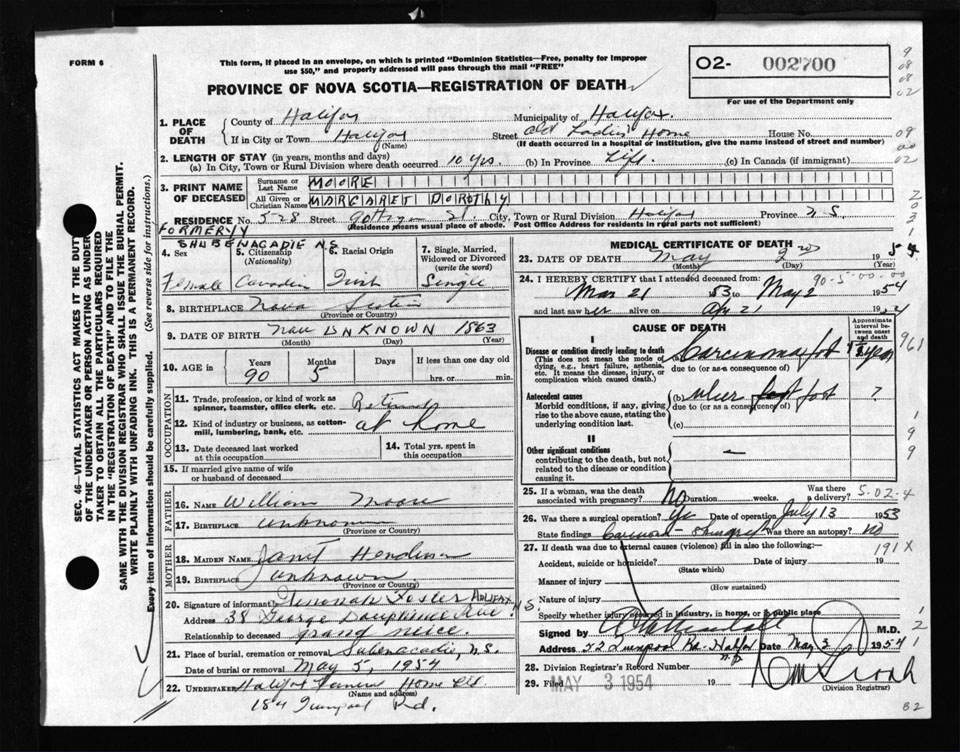 FORM 6
This form, if placed in an envelope, on which is printed "Dominion Statistics—Free, penalty for improper
use $50," and properly addressed will pass through the mail "FREE"
PROVINCE OF NOVA SCOTIA—REGISTRATION OF DEATH
O2- 002700
For use of the Department only
1. PLACE OF DEATH
County of Halifax Municipality of Halifax.
If in City or Town Halifax Street Old Ladies' Home House No.
(Name) (If death occurred in a hospital or institution, give the name instead of street and number)
2. LENGTH OF STAY (in years, months and days)
(a) In City, Town or Rural Division where death occurred 10 yrs. (b) In Province Life. (c) In Canada (if immigrant)
3. PRINT NAME OF DECEASED
Surname or Last Name MOORE
All Given or Christian Names MARGARET DOROTHY
RESIDENCE No. 528 Street Gottigen St. City, Town or Rural Division Halifax Province N.S.
(Residence means usual place of abode. Post Office Address for residents in rural parts not sufficient)
FORMERLY
SHUBENACADIE N.S.
4. Sex Female
5. Citizenship (Nationality) Canadian
6. Racial Origin Irish
7. Single, Married, Widowed or Divorced (write the word) Single
8. BIRTHPLACE Nova Scotia
(Province or Country)
9. DATE OF BIRTH UNKNOWN 1863
(Month) (Day) (Year)
10. AGE Years 90 Months 5 Days If less than one day old hrs. or min.
OCCUPATION
11. Trade, profession, or kind of work as spinner, teamster, office clerk, etc. Retired
12. Kind of industry or business, as cotton-mill, lumbering, bank, etc. at home
13. Date deceased last worked at this occupation
14. Total yrs. spent in this occupation
15. If married give name of wife or husband of deceased
FATHER
16. NAME William Moore
17. BIRTHPLACE unknown
(Province or Country)
MOTHER
18. MAIDEN NAME Janet
19. BIRTHPLACE Unknown
(Province or Country)
20. Signature of informant Foster HALIFAX N.S.
Address 38 George Dauphinee Ave
Relationship to deceased grand neice.
21. Place of burial, cremation or removal Subenacadie, N.S.
Date of burial or removal May 5, 1954
22. UNDERTAKER Halifax Funeral Home Ltd
(Name and address)
184 Rd.
MEDICAL CERTIFICATE OF DEATH
23. DATE OF DEATH May 2nd 1954
(Month) (Day) (Year)
90-5-00-00
24. I HEREBY CERTIFY that I attended deceased from:
Mar 21 53 to May 2 1954
and last saw her alive on Apr 21 19
CAUSE OF DEATH
Approximate interval between onset and death
I
Disease or condition directly leading to death
(This does not mean the mode of dying, e.g., heart failure, asthenia, etc. It means the disease, injury, or complication which caused death.)
(a) Carcinoma foot
due to (or as a consequence of)
Antecedent causes
Morbid conditions, if any, giving rise to the above cause, stating the underlying condition last.
(b) ulcer foot ?
due to (or as a consequence of)
(c)
II
Other significant conditions
contributing to the death, but not related to the disease or condition causing it.
25. If a woman, was the death associated with pregnancy? No Duration weeks. Was there a delivery? 5-02-4
26. Was there a surgical operation? Yes Date of operation July 13 1953
State findings Was there an autopsy? No
27. If death was due to external causes (violence) fill in also the following:—
191 X
Accident, suicide or homicide? Date of injury 19
(State which)
Manner of injury
(How sustained)
Nature of injury
Specify whether injury occurred in industry, in home, or in public place
Signed by M.D.
Address 52 Liverpool Halifax Date May 3 1954
28. Division Registrar's Record Number
29. Filed MAY 3 1954
(Division Registrar)
SEC. 46—VITAL STATISTICS ACT MAKES IT THE DUTY
OF THE UNDERTAKER OR PERSON ACTING AS UNDER-
TAKER TO OBTAIN ALL THE PARTICULARS REQUIRED
IN THE "REGISTRATION OF DEATH" AND TO FILE THE
SAME WITH THE DIVISION REGISTRAR WHO SHALL ISSUE THE BURIAL PERMIT.
WRITE PLAINLY WITH UNFADING INK. THIS IS A PERMANENT RECORD.
Every item of information should be carefully supplied. (See reverse side for instructions.)